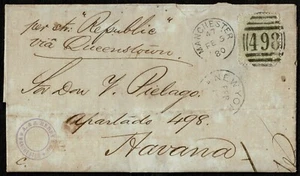 per str. "Republic"
via Queenstown.
MANCHESTER
FE 5
80
498
NEW YORK
Sor Don V. Pielago.
Apartado 498.
Havana